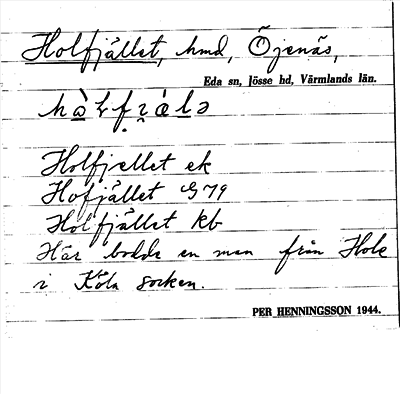 Holfjället, hmd, Öjenäs,
Eda sn, Jösse hd, Värmlands län.
Holfjellet ek
Hofjället G79
Holfjället kb
Här bodde en man från Hole
i Köla socken.
PER HENNINGSSON 1944.